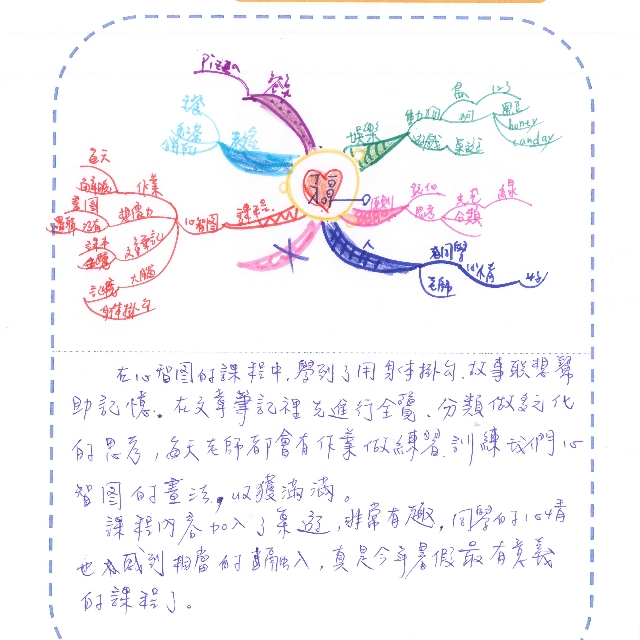 Pizza
餐
娛樂
鳥
123
狗
動物
黑豆
honey
canday
遊戲
桌遊
每天
作業
畫圖
想像力
心智圖
課程
課本
文章筆記
大腦
記憶
身体掛勾
原則
思考
分類
人
看同學
老師
心情
好
在心智图的課程中,學到了用身体掛勾、故事联想幫
助記憶.在文章筆記裡先進行全覽、分類做多元化
的思考,每天老師都會有作業做練習,訓練我們心
智图的畫法,收獲滿滿。
課程內容加入了桌遊,非常有趣,同學的心情
也感到相當的融入,真是今年暑假最有意義
的課程了。